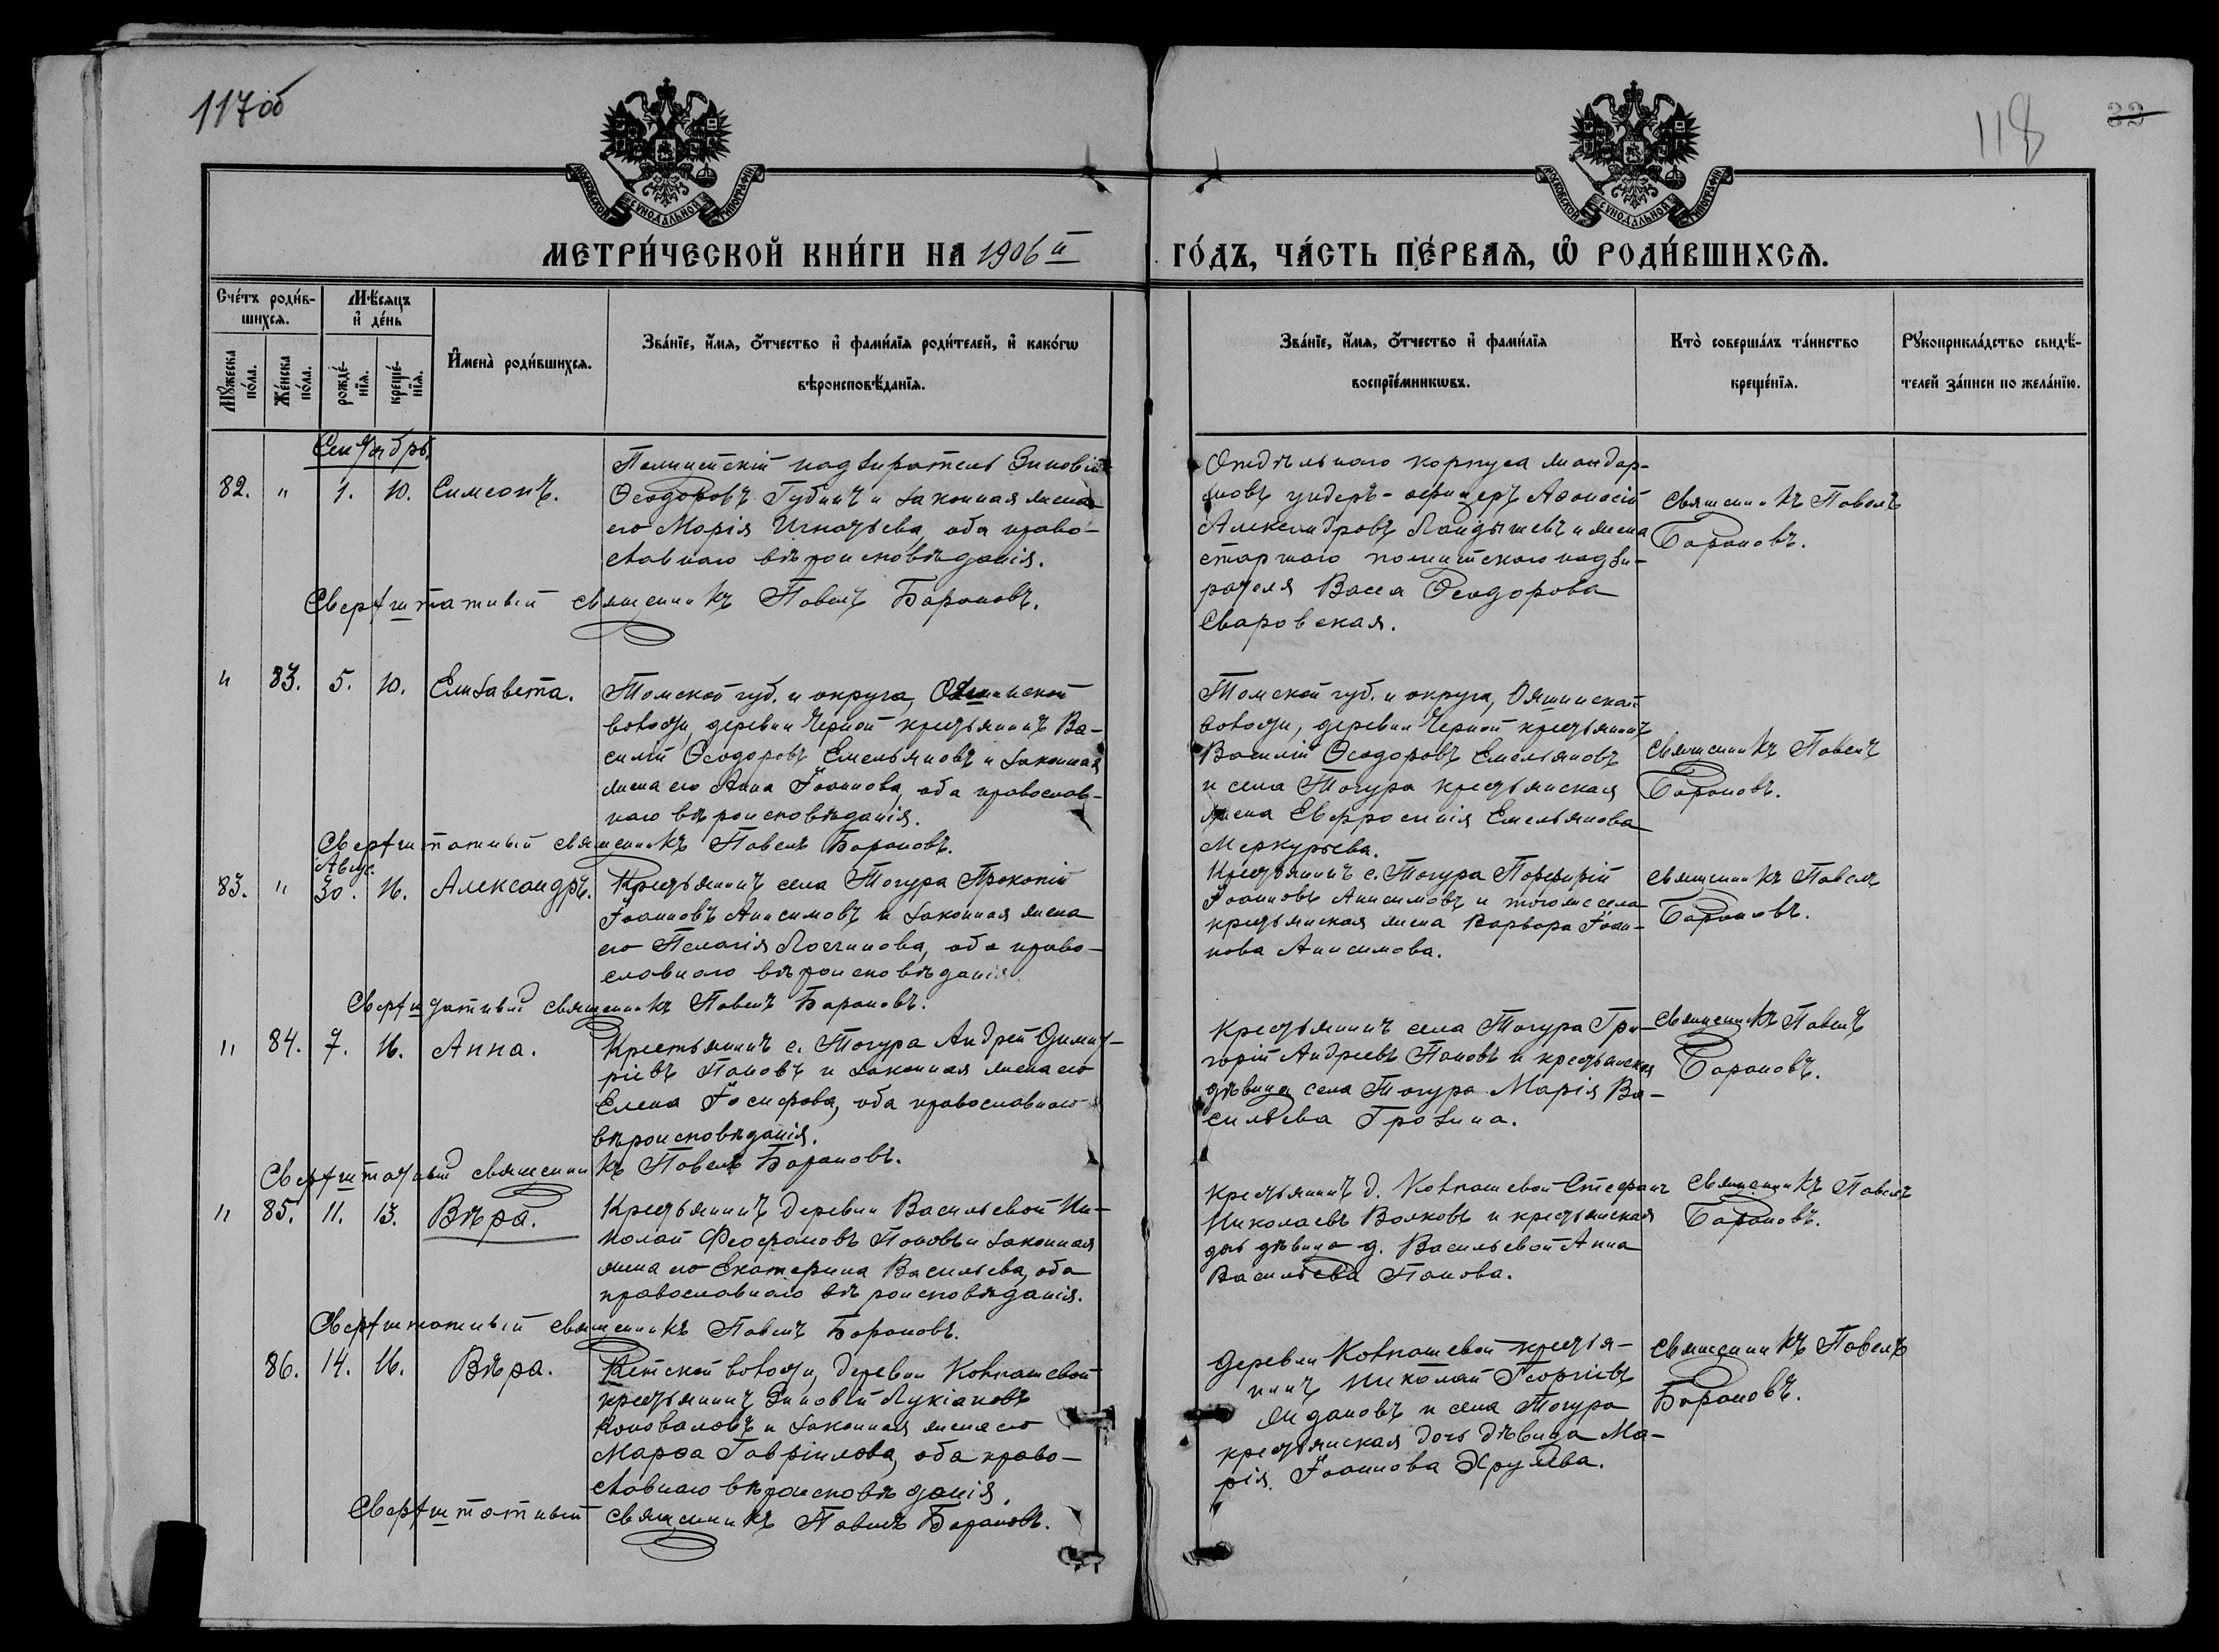 117 об
118
33
МОСКОВСКОЙ СѴНОДАЛЬНОЙ ТИПОГРАФІИ
МОСКОВСКОЙ СѴНОДАЛЬНОЙ ТИПОГРАФІИ
МЕТРИ́ЧЕСКОЙ КНИ́ГИ НА 1906й ГО́ДЪ, ЧА́СТЬ ПЕ́РВАѦ, Ѡ҆ РОДИ́ВШИХСѦ.
Счéтъ роди́в-
шихсѧ.
Мѣ́сѧцъ
и҆ дéнь
Мꙋ́жеска
по́ла.
Же́нска
по́ла.
рожде́-
нїѧ.
креще́-
нїѧ.
И҆мена̀ роди́вшихсѧ.
Зва́нїе, и҆́мѧ, ѻ҆́тчество и҆ фами́лїѧ роди́телей, и҆ како́гѡ
вѣроисповѣ́данїѧ.
Зва́нїе, и҆́мѧ, ѻ҆́тчество и҆ фами́лїѧ
воспрїе́мникѡвъ.
Кто̀ соверша́лъ та́инство
креще́нїѧ.
Рꙋкоприкла́дство свидѣ́-
телей за́писи по жела́нїю.
Сентябрь.
82. " 1. 10. Симеонъ.
Полицейскій надзиратель Зиновій
Ѳеодоровъ Губинъ и законная жена
его Марія Игнатьева, оба право-
славнаго вѣроисповѣданія.
Сверхштатный священникъ Павелъ Барановъ.
Отдѣльнаго корпуса жандар-
мовъ ундеръ-офицеръ Аѳанасій
Александровъ Ландышевъ и жена
старшаго полицейскаго надзи-
рателя Васса Ѳеодорова
Сваровская.
Священникъ Павелъ
Барановъ.
" 83. 5. 10. Елизавета.
Томской губ. и округа, Ояшинской
волости, деревни Черной крестьянинъ Ва-
силій Ѳеодоровъ Емельяновъ и законная
жена его Анна Іоаннова, оба православ-
наго вѣроисповѣданія.
Сверхштатный священникъ Павелъ Барановъ.
Томской губ. и округа, Ояшинской
волости, деревни Черной крестьянинъ
Василій Ѳеодоровъ Емельяновъ
и села Тогура крестьянская
жена Евфросинія Емельянова
Меркурьева.
Священникъ Павелъ
Барановъ.
Авгус.
83. " 30. 16. Александръ.
Крестьянинъ села Тогура Прокопій
Іоанновъ Анисимовъ и законная жена
его Пелагія Логгинова, оба право-
славнаго вѣроисповѣданія
Сверхштатный священникъ Павелъ Барановъ.
Крестьянинъ с. Тогура Порфирій
Іоанновъ Анисимовъ и того же села
крестьянская жена Варвара Іоан-
нова Анисимова.
Священникъ Павелъ
Барановъ.
" 84. 7. 16. Анна.
Крестьянинъ с. Тогура Андрей Димит-
ріевъ Пановъ и законная жена его
Елена Іосифова, оба православнаго
вѣроисповѣданія.
Сверхштатный священникъ Павелъ Барановъ.
Крестьянинъ села Тогура Гри-
горій Андреевъ Пановъ и крестьянская
дѣвица села Тогура Марія Ва-
сильева Грозина.
Священникъ Павелъ
Барановъ.
" 85. 11. 13. Вѣра.
Крестьянинъ деревни Васильевой Ни-
колай Феофановъ Пановъ и законная
жена его Екатерина Васильева, оба
православнаго вѣроисповѣданія.
Сверхштатный священникъ Павелъ Барановъ.
Крестьянинъ д. Колпашевой Стефанъ
Николаевъ Волковъ и крестьянская
дочь дѣвица д. Васильевой Анна
Васильева Панова.
Священникъ Павелъ
Барановъ.
86. 14. 16. Вѣра.
Кетской волости, деревни Колпашевой
крестьянинъ Зиновій Лукіановъ
Коноваловъ и законная жена его
Марѳа Гавріилова, оба право-
славнаго вѣроисповѣданія.
Сверхштатный священникъ Павелъ Барановъ.
Деревни Колпашевой крестья-
нинъ Николай Георгіевъ
Ждановъ и села Тогура
крестьянская дочь дѣвица Ма-
рія Іоаннова
Священникъ Павелъ
Барановъ.